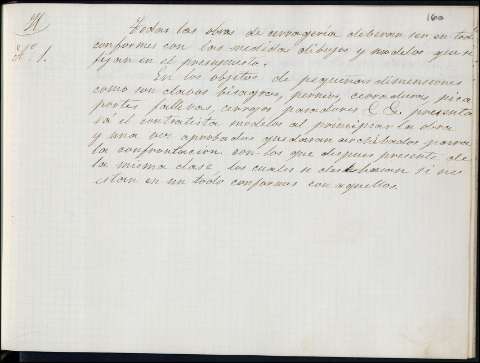 160
N
Nº 1.
Todas las obras de cerrageria deberan ser en todo
conformes con las medidas dibujos y modelos que se
fijan en el presupuesto.
En los objetos de pequeñas dimensiones
como son clavos bisagras, pernios, cerraduras, pica
portes fallevas, cerrojos pasadores & &. presenta
rá el contratista modelos al principiar la obra
y una vez aprobados quedaran archibados para
la confrontacion con los que despues presente de
la misma clase los cuales se desecharan si no
estan en un todo conformes con aquellos.